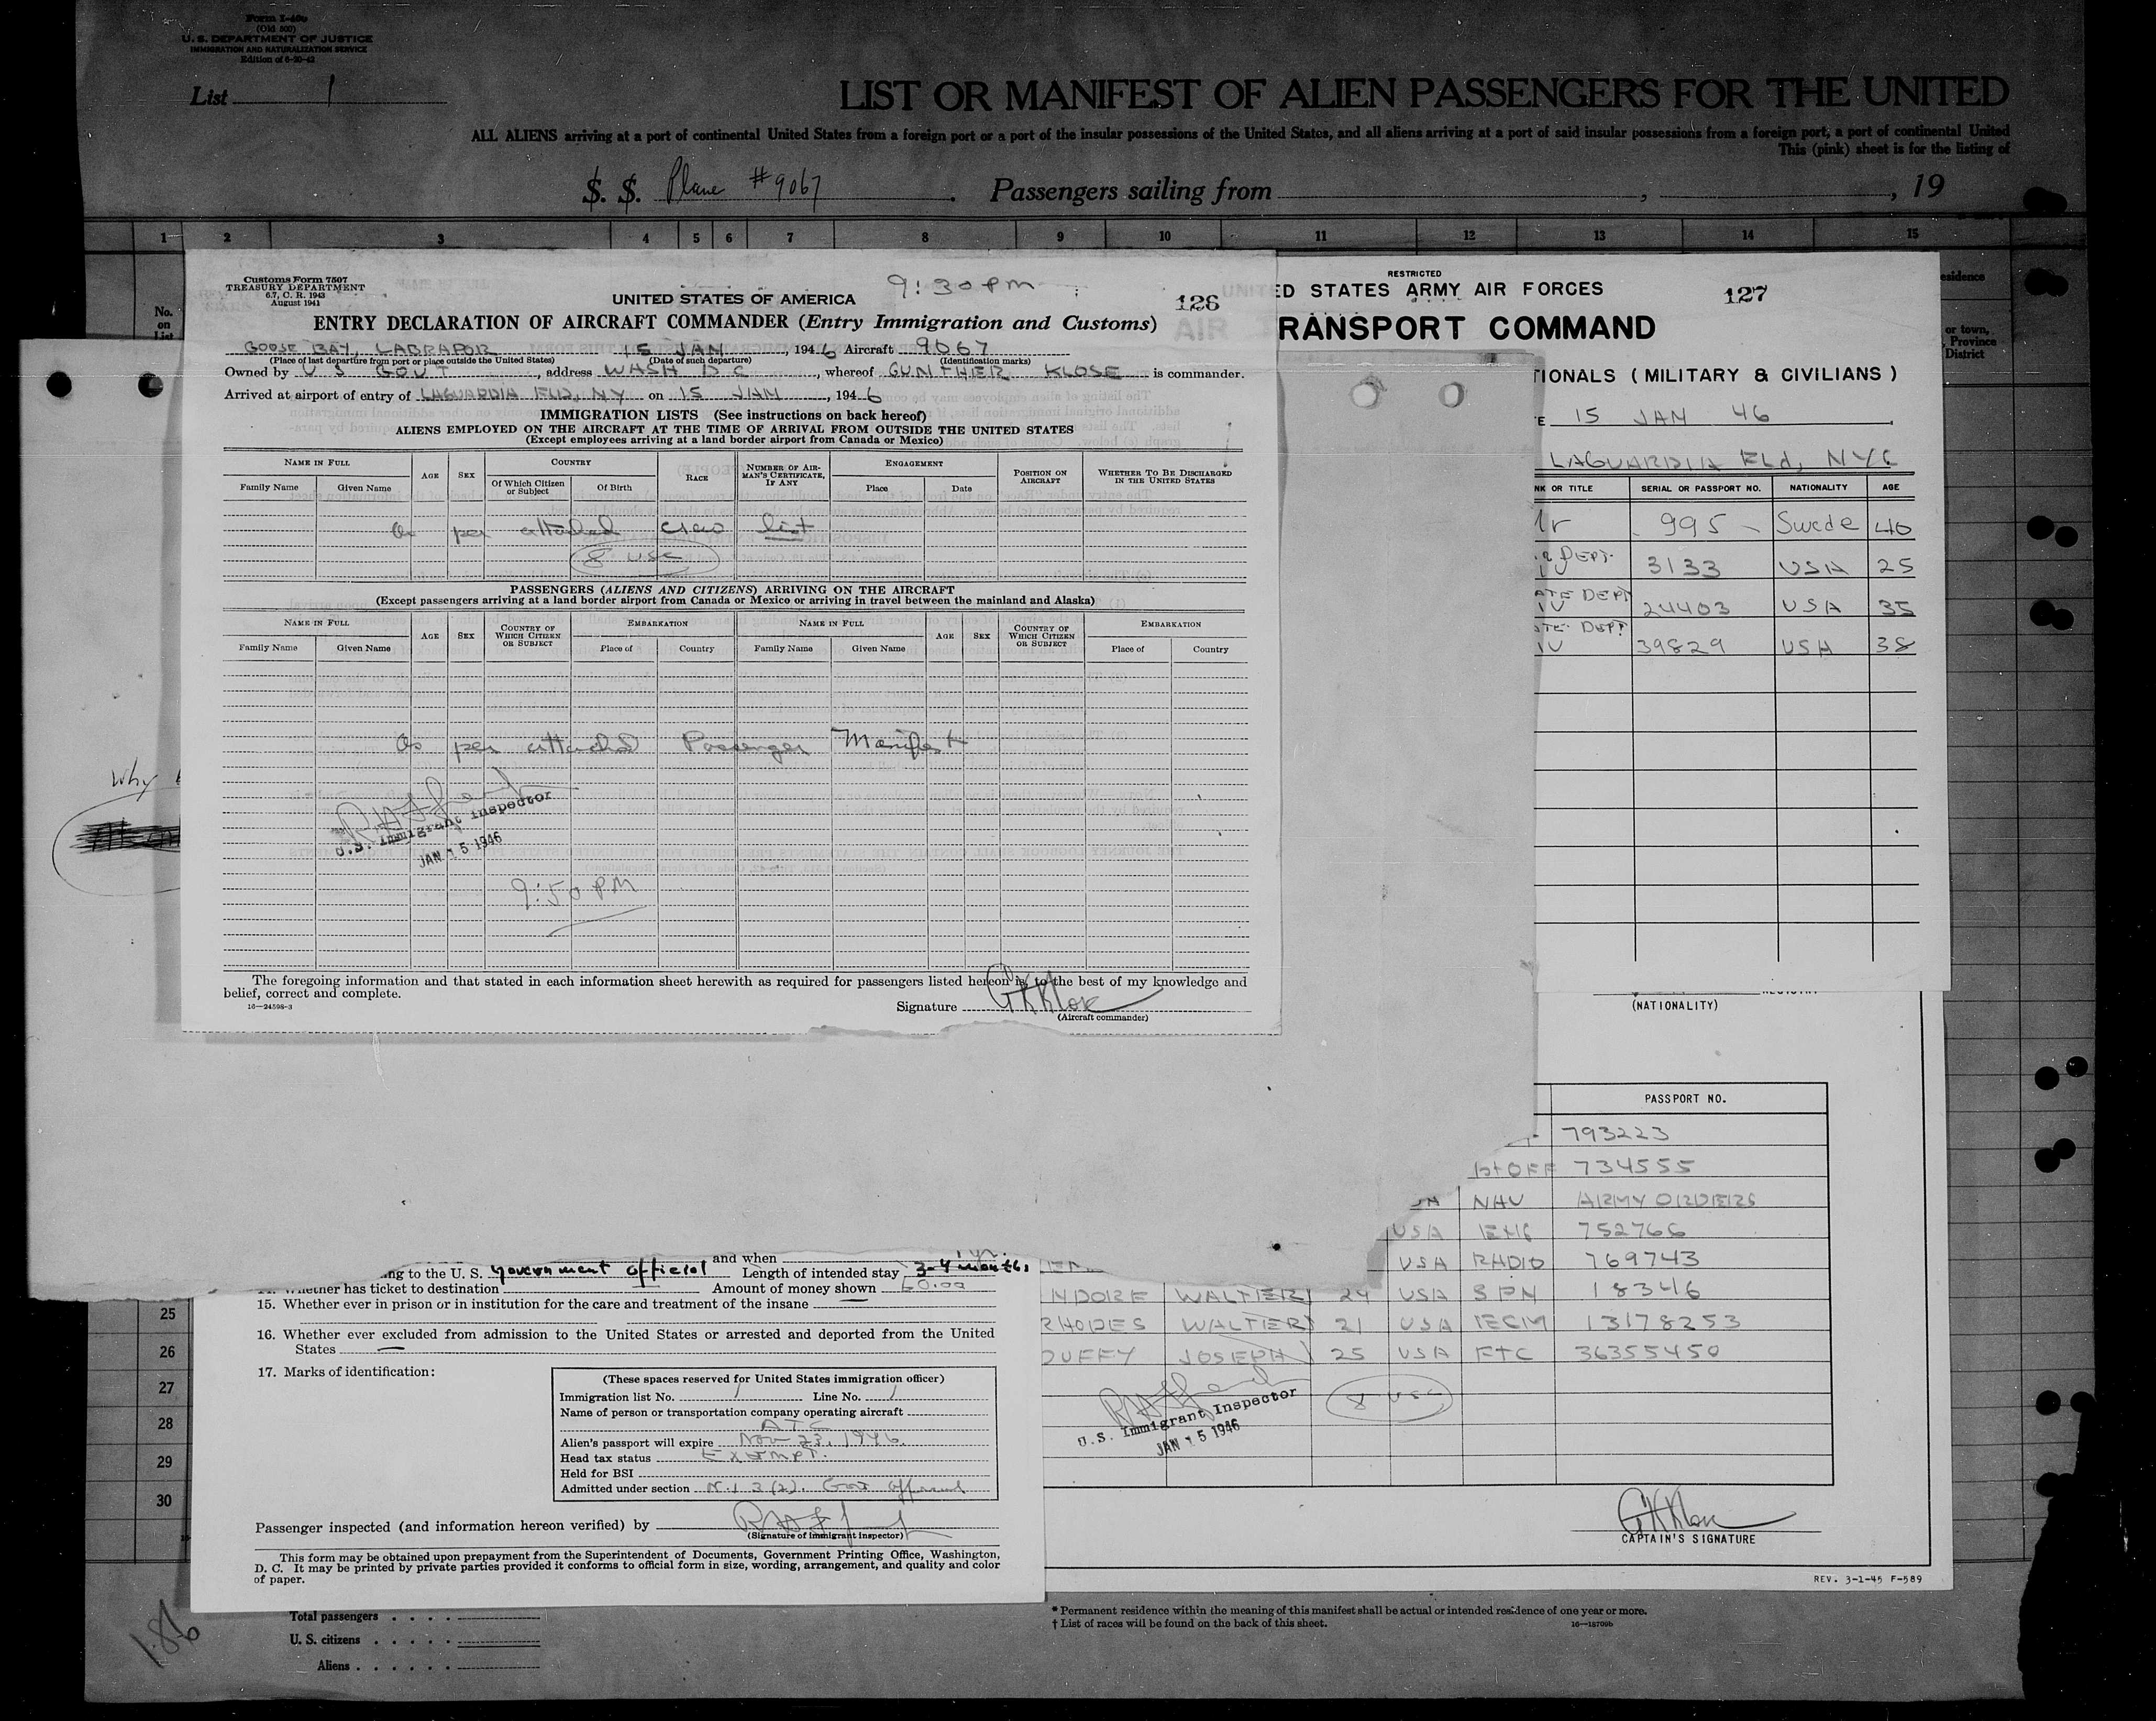 Form I-466
(Old 500)
U. S. DEPARTMENT OF JUSTICE
IMMIGRATION AND NATURALIZATION SERVICE
Edition of 6-20-42
List 1
LIST OR MANIFEST OF ALIEN PASSENGERS FOR THE UNITED
ALL ALIENS arriving at a port of continental United States from a foreign port or a port of the insular possessions of the United States, and all aliens arriving at a port of said insular possessions from a foreign port, a port of continental United
This (pink) sheet is for the listing of
S. S. Plane #9067 . Passengers sailing from , , 19
1 2 3 4 5 6 7 8 9 10 11 12 13 14 15
No.
on
List
esidence
or town,
Province
District
Customs Form 7507
TREASURY DEPARTMENT
6.7, C. R. 1943
August 1941
9:30 PM
UNITED STATES OF AMERICA
126
ENTRY DECLARATION OF AIRCRAFT COMMANDER (Entry Immigration and Customs)
GOOSE BAY, LABRADOR 15 JAN , 1946 Aircraft 9067
(Place of last departure from port or place outside the United States) (Date of such departure) (Identification marks)
Owned by U S GOVT , address WASH D C , whereof GUNTHER KLOSE is commander.
Arrived at airport of entry of LAGUARDIA FLD, NY on 15 JAN , 1946
IMMIGRATION LISTS (See instructions on back hereof)
ALIENS EMPLOYED ON THE AIRCRAFT AT THE TIME OF ARRIVAL FROM OUTSIDE THE UNITED STATES
(Except employees arriving at a land border airport from Canada or Mexico)
NAME IN FULL AGE SEX COUNTRY RACE NUMBER OF AIRMAN'S CERTIFICATE, IF ANY ENGAGEMENT POSITION ON AIRCRAFT WHETHER TO BE DISCHARGED IN THE UNITED STATES
Family Name Given Name Of Which Citizen or Subject Of Birth Place Date
As per attached crew list
8 USC
PASSENGERS (ALIENS AND CITIZENS) ARRIVING ON THE AIRCRAFT
(Except passengers arriving at a land border airport from Canada or Mexico or arriving in travel between the mainland and Alaska)
NAME IN FULL AGE SEX COUNTRY OF WHICH CITIZEN OR SUBJECT EMBARKATION NAME IN FULL AGE SEX COUNTRY OF WHICH CITIZEN OR SUBJECT EMBARKATION
Family Name Given Name Place of Country Family Name Given Name Place of Country
As per attached Passenger Manifest
U.S. Immigrant Inspector
JAN 15 1946
9:50 PM
The foregoing information and that stated in each information sheet herewith as required for passengers listed hereon is to the best of my knowledge and
belief, correct and complete.
16—24598-3
Signature GKKlose
(Aircraft commander)
Why
RESTRICTED
UNITED STATES ARMY AIR FORCES
127
AIR TRANSPORT COMMAND
TIONALS (MILITARY & CIVILIANS)
E 15 JAN 46
LAGUARDIA FLd, NYC
NK OR TITLE SERIAL OR PASSPORT NO. NATIONALITY AGE
Mr 995 - Swede 40
DEPT. 3133 USA 25
ATE DEPT 24403 USA 35
ATE DEPT 39829 USA 38
(NATIONALITY)
PASSPORT NO.
793223
734555
NAV ARMY ORDERS
USA ENG 752766
USA RADIO 769743
WALTER 24 USA 18346
RHODES WALTER 21 USA 13178253
DUFFY JOSEPH 25 USA FTC 36355450
U.S. Immigrant Inspector
JAN 15 1946
8 USC
GKKlose
CAPTAIN'S SIGNATURE
REV. 3-1-45 F-589
and when 1 yr.
ng to the U. S. government official Length of intended stay 3-4 months
Whether has ticket to destination Amount of money shown 60.00
15. Whether ever in prison or in institution for the care and treatment of the insane
16. Whether ever excluded from admission to the United States or arrested and deported from the United
States —
17. Marks of identification:
(These spaces reserved for United States immigration officer)
Immigration list No. 1 Line No. 1
Name of person or transportation company operating aircraft
ATC
Alien's passport will expire Nov 23, 1946.
Head tax status Exempt.
Held for BSI
Admitted under section 3(2). Gov official
Passenger inspected (and information hereon verified) by
(Signature of Immigrant Inspector)
This form may be obtained upon prepayment from the Superintendent of Documents, Government Printing Office, Washington,
D. C. It may be printed by private parties provided it conforms to official form in size, wording, arrangement, and quality and color
of paper.
25
26
27
28
29
30
186
Total passengers . . . .
U. S. citizens . . . . .
Aliens . . . . . .
* Permanent residence within the meaning of this manifest shall be actual or intended residence of one year or more.
† List of races will be found on the back of this sheet.
16—18709b